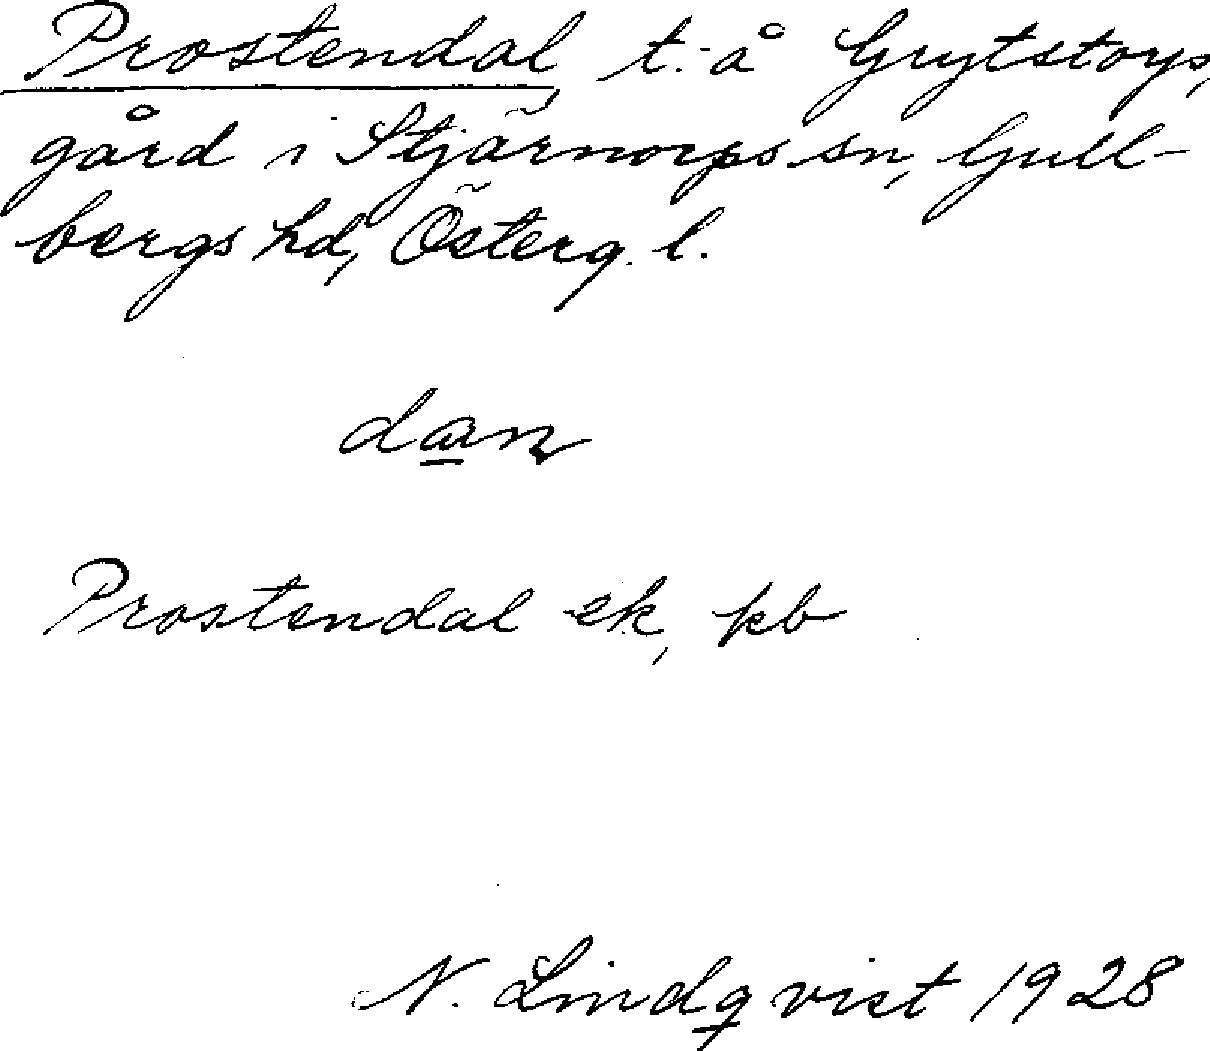 Prostendal, t. å Grytstorp,
gård i Stjärnorps sn, Gull-
bergs hd, Österg. l.
dan
Prostendal ek, kb
N. Lindqvist 1928